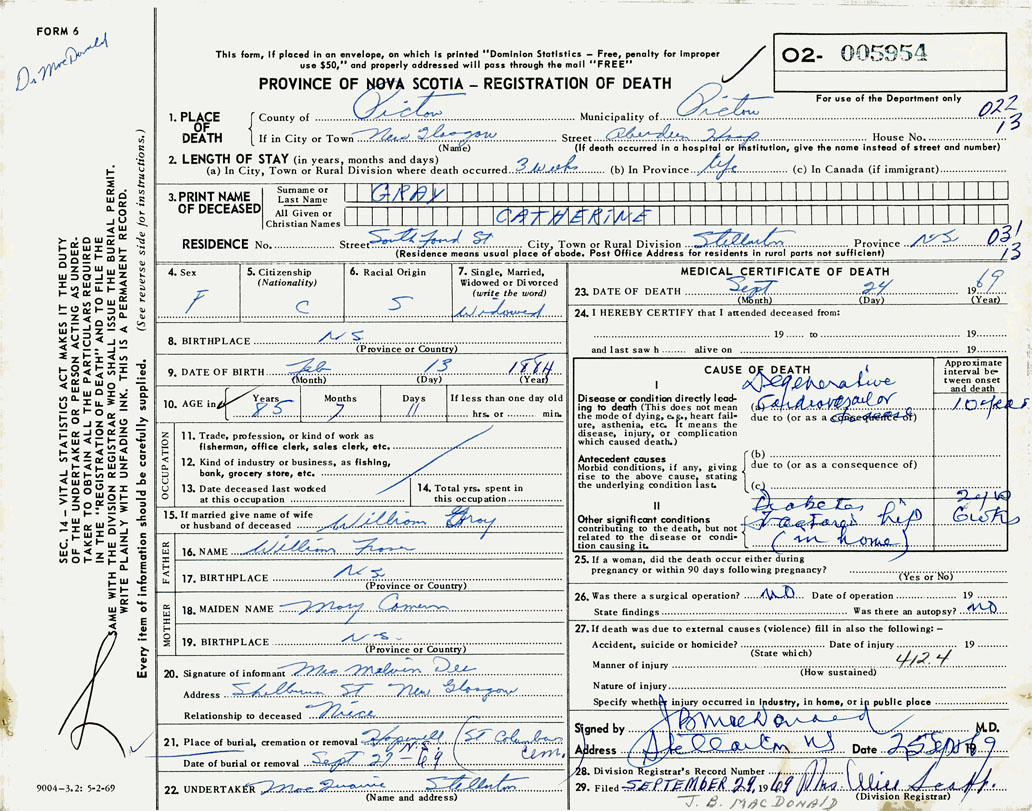 FORM 6
Dr MacDonald
This form, if placed in an envelope, on which is printed "Dominion Statistics – Free, penalty for improper
use $50," and properly addressed will pass through the mail "FREE"
PROVINCE OF NOVA SCOTIA – REGISTRATION OF DEATH
O2- 005954
For use of the Department only
022
13
1. PLACE OF DEATH
County of Pictou Municipality of Pictou
If in City or Town New Glasgow Street Aberdeen Hosp House No.
(Name) (If death occurred in a hospital or institution, give the name instead of street and number)
2. LENGTH OF STAY (in years, months and days)
(a) In City, Town or Rural Division where death occurred 3 weeks (b) In Province life (c) In Canada (if immigrant)
3. PRINT NAME OF DECEASED
Surname or Last Name GRAY
All Given or Christian Names CATHERINE
RESIDENCE No. Street South Foord St City, Town or Rural Division Stellarton Province N.S 031
(Residence means usual place of abode. Post Office Address for residents in rural parts not sufficient) 13
4. Sex F
5. Citizenship (Nationality) C
6. Racial Origin S
7. Single, Married, Widowed or Divorced (write the word) Widowed
8. BIRTHPLACE N S
(Province or Country)
9. DATE OF BIRTH Feb 13 1884
(Month) (Day) (Year)
10. AGE in Years 85 Months 7 Days 11 If less than one day old hrs. or min.
OCCUPATION
11. Trade, profession, or kind of work as
fisherman, office clerk, sales clerk, etc.
12. Kind of industry or business, as fishing,
bank, grocery store, etc.
13. Date deceased last worked
at this occupation
14. Total yrs. spent in
this occupation
15. If married give name of wife
or husband of deceased William Gray
FATHER
16. NAME William Fraser
17. BIRTHPLACE N S
(Province or Country)
MOTHER
18. MAIDEN NAME Mary Cameron
19. BIRTHPLACE N S
(Province or Country)
20. Signature of informant Mrs Melvin Dee
Address Shelburn St New Glasgow
Relationship to deceased Niece
21. Place of burial, cremation or removal Hopewell N.S. (St Columbas Cem.)
Date of burial or removal Sept 27-69
22. UNDERTAKER MacQuarrie Stellarton
(Name and address)
MEDICAL CERTIFICATE OF DEATH
23. DATE OF DEATH Sept 24 1969
(Month) (Day) (Year)
24. I HEREBY CERTIFY that I attended deceased from:
19 to 19
and last saw h alive on 19
CAUSE OF DEATH
Approximate interval between onset and death
I
Disease or condition directly leading to death (This does not mean the mode of dying, e.g., heart failure, asthenia, etc. It means the disease, injury, or complication which caused death.)
(a) Degenerative Cardiovascular disease 10 years
due to (or as a consequence of)
Antecedent causes
Morbid conditions, if any, giving rise to the above cause, stating the underlying condition last.
(b)
due to (or as a consequence of)
(c)
II
Other significant conditions
contributing to the death, but not related to the disease or condition causing it.
Diabetes
Fractured hip 6 wks
(in home)
25. If a woman, did the death occur either during
pregnancy or within 90 days following pregnancy?
(Yes or No)
26. Was there a surgical operation? NO Date of operation 19
State findings Was there an autopsy? NO
27. If death was due to external causes (violence) fill in also the following: –
Accident, suicide or homicide? Date of injury 19
(State which)
Manner of injury 412.4
(How sustained)
Nature of injury
Specify whether injury occurred in Industry, in home, or in public place
Signed by J B MacDonald M.D.
Address Stellarton NS Date 25 Sept 1969
28. Division Registrar's Record Number
29. Filed SEPTEMBER 29, 1969 Mrs. Alice
(Division Registrar)
J. B. MACDONALD
SEC. 14 – VITAL STATISTICS ACT MAKES IT THE DUTY
OF THE UNDERTAKER OR PERSON ACTING AS UNDER-
TAKER TO OBTAIN ALL THE PARTICULARS REQUIRED
IN THE "REGISTRATION OF DEATH" AND TO FILE THE
SAME WITH THE DIVISION REGISTRAR WHO SHALL ISSUE THE BURIAL PERMIT.
WRITE PLAINLY WITH UNFADING INK. THIS IS A PERMANENT RECORD.
Every item of information should be carefully supplied. (See reverse side for instructions.)
9004-3.2: 5-2-69